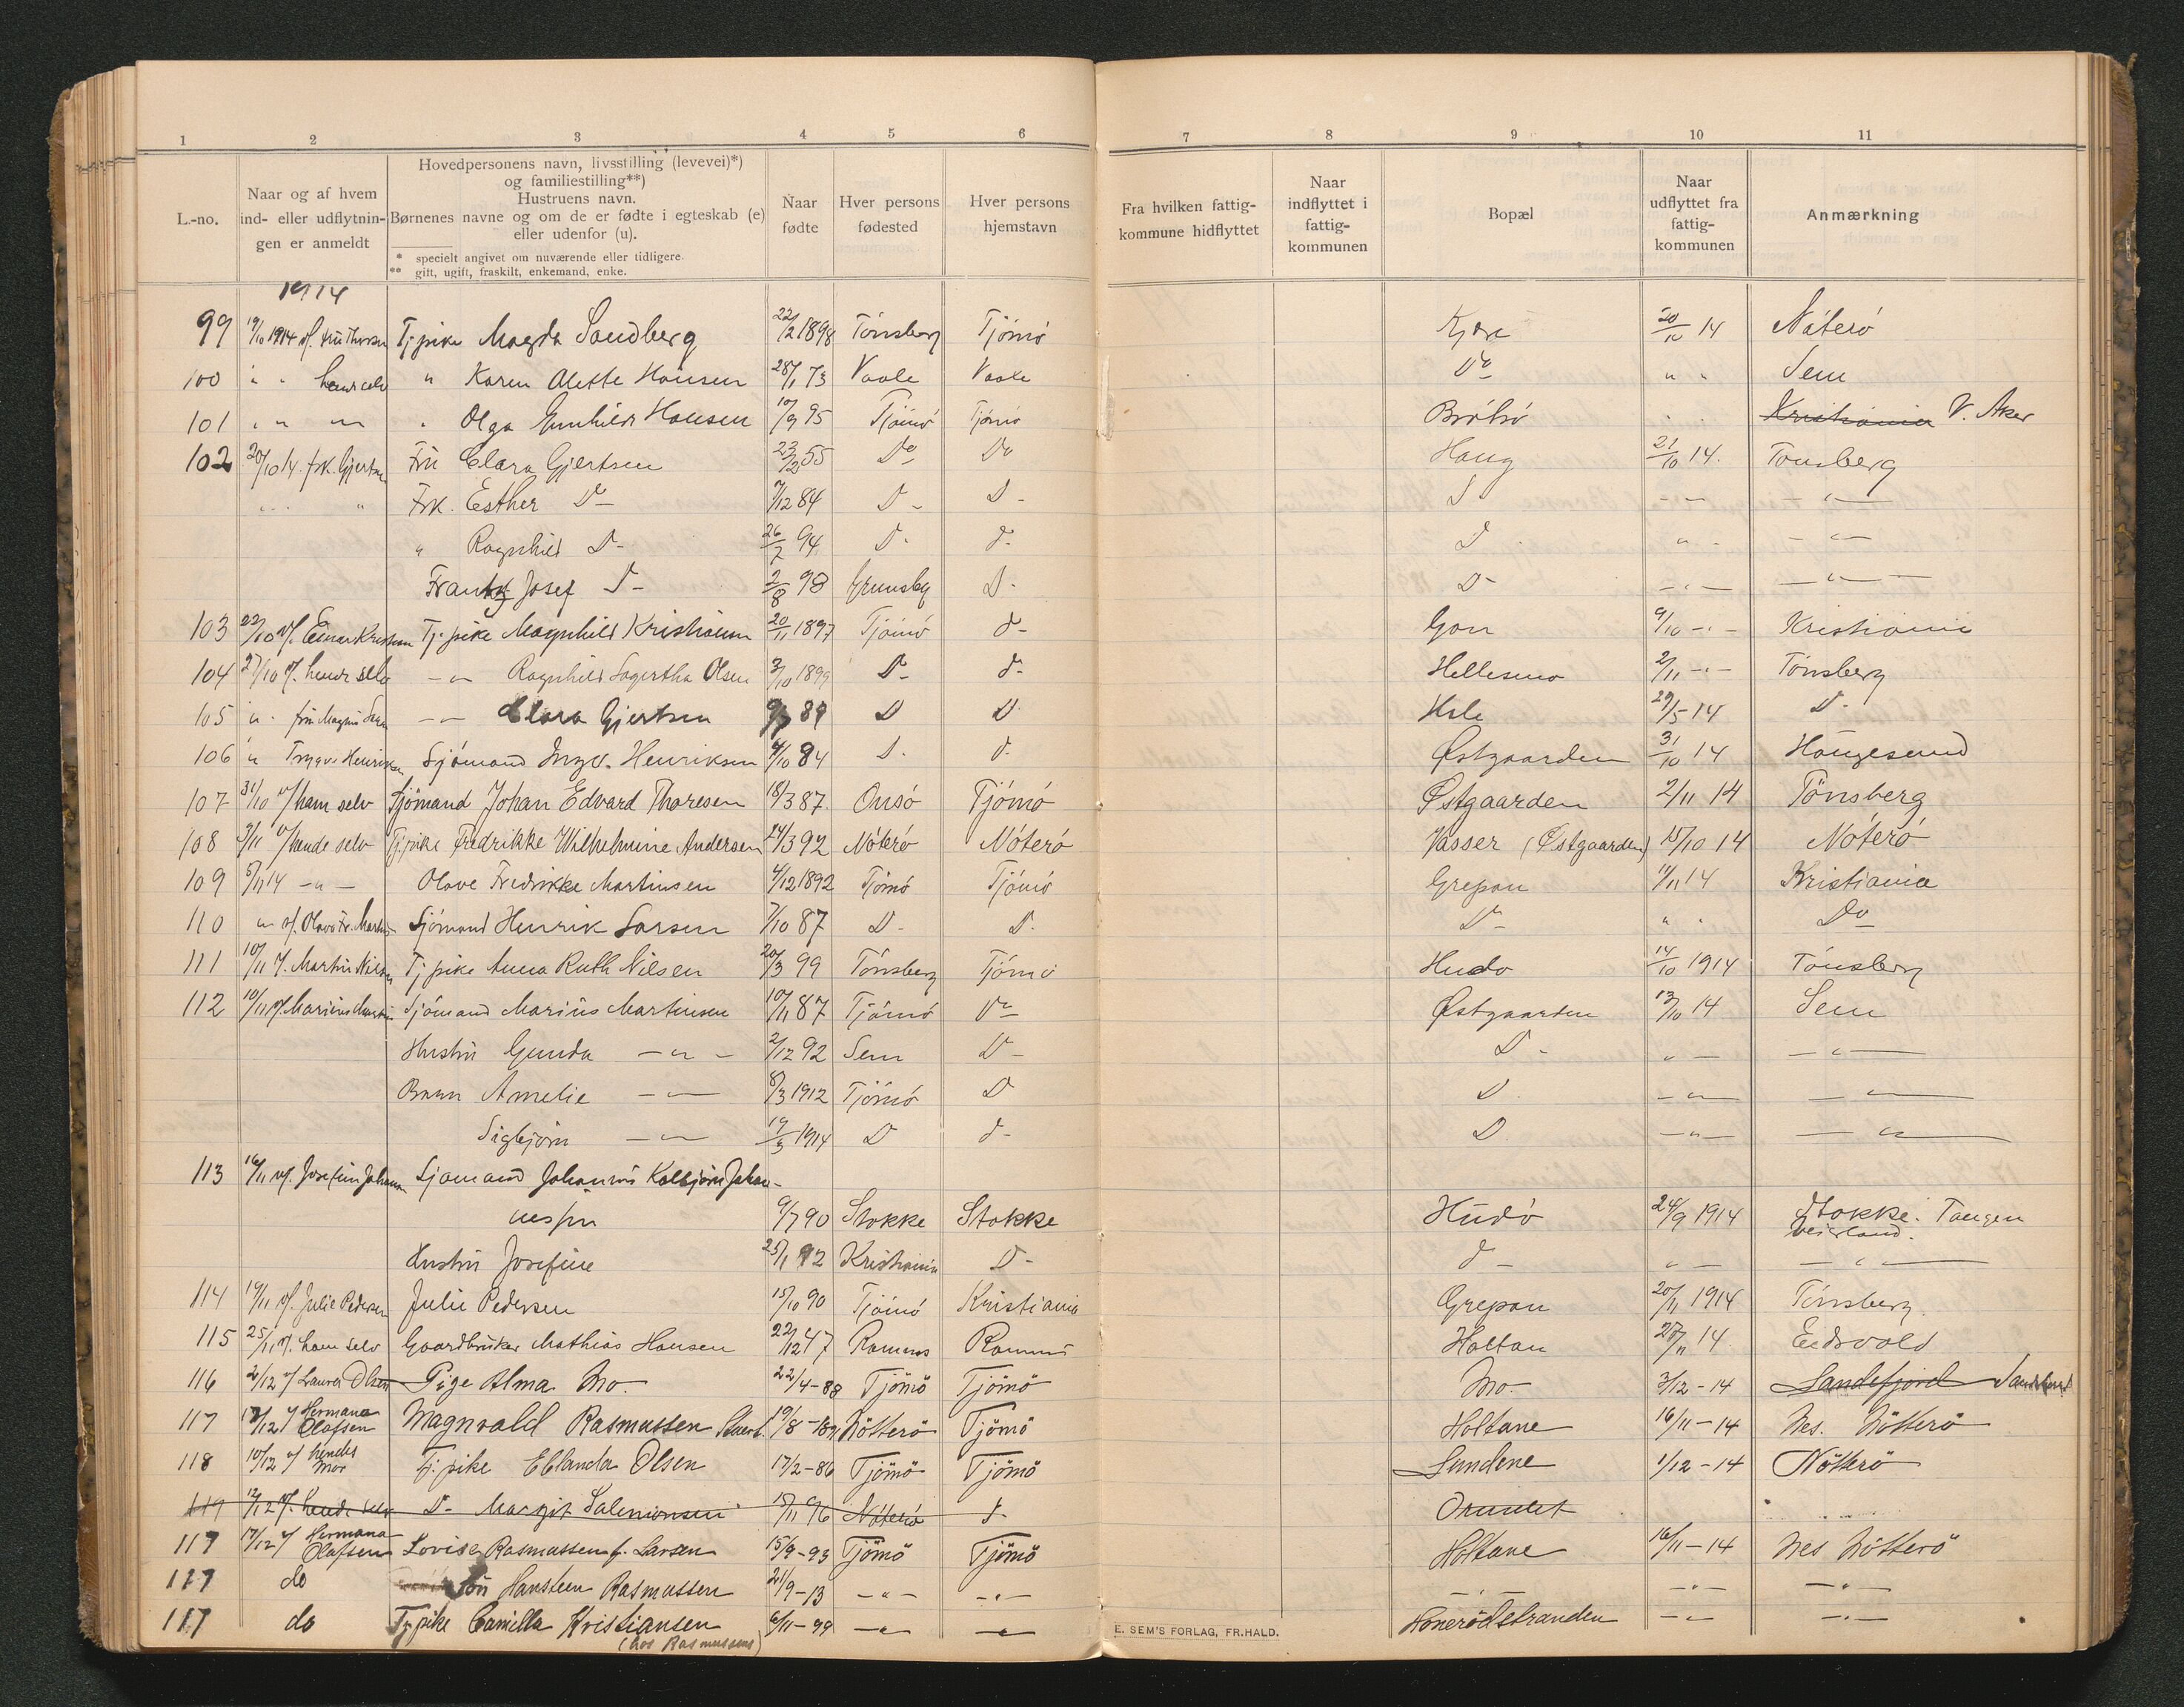 1 2 3 4 5 6 7 8 9 10 11
L.-no.
Naar og af hvem
ind- eller udflytnin-
gen er anmeldt
Hovedpersonens navn, livsstilling (levevei)*)
og familiestilling**)
Hustruens navn.
Børnenes navne og om de er fødte i egteskab (e)
eller udenfor (u).
* specielt angivet om nuværende eller tidligere.
** gift, ugift, fraskilt, enkemand, enke.
Naar
fødte
Hver persons
fødested
Hver persons
hjemstavn
Fra hvilken fattig-
kommune hidflyttet
Naar
indflyttet i
fattig-
kommunen
Bopæl
Naar
udflyttet fra
fattig-
kommunen
Anmærkning
1914
99 19/10 1914 Tj. pike Magda Sandberg 22/2 1898 Tönsberg Tjömö Kjære 20/10 14 Nöterö
100 " " " Karen Alette Hansen 28/1 73 Vaale Vaale Do " " Sem
101 " " " " Olga Gunhild Hansen 10/9 95 Tjömö Tjömö Bröttö " " Kristiania V. Aker
102 20/10 14. frk. Gjertsen Fru Clara Gjertsen 23/2 55 Do Do Haug 21/10 14. Tönsberg
Frk. Esther Do 7/12 84 D - D - D - " - - " -
" Ragnhild D - 26/7 94 D - d - D - " - - " -
Frantz Josef D - 2/8 98 Grimsby D - D - - " - - " -
103 22/10 v/. Einar Kristiansen Tj. pike Magnhild Kristiansen 20/11 1897 Tjömö d - Gon 9/10 - " - Kristiania
104 27/10 v/. hende selv - " - Ragnhild Lagertha Olsen 3/10 1899 D - d - Hellesmo 2/11 - " - Tönsberg
105 " - " - Clara Gjertsen 9/7 89 D D Hele 29/5 - 14 D -
106 " Trygve Henriksen Sjömand Ingv. Henriksen 4/10 84 D - d - Østgaarden 31/10 14 Haugesund
107 31/10 v/ ham selv Sjömand Johan Edvard Thoresen 18/3 87. Onsö Tjömö Østgaarden 2/11 14 Tönsberg
108 3/11 v/ hende selv Tj pike Fredrikke Wilhelmine Andersen 24/3 92 Nöterö Nöterö Vasser (Østgaarden) 15/10 14 Nöterö
109 5/11 14 - " - Olave Fredrikke Martinsen 4/12 1892 Tjömö Tjömö Grepan 11/11 14 Kristiania
110 " v/. Olava Fr. Martin Sjömand Henrik Larsen 7/10 87 D - D - Do " " Do
111 10/11 v/. Martin Nilsen Tj pike Anna Ruth Nilsen 20/3 99 Tönsberg Tjömö Hudo 14/10 1914 Tönsberg
112 10/11 v/. Marius Martin Sjömand Marius Martinsen 10/11 87 Tjömö Do Østgaarden 13/10 14 Sem
Hustru Gunda - " - 2/12 92 Sem D - D - " - - " -
Barn Amelie - " - 8/3 1912 Tjömö D D - " - - " -
Sigbjörn - " - 19/3 1914 D d - D - " - - " -
113 16/11 v/. Josefine Johannesen Sjömand Johannes Kolbjörn Johan-
nesen 9/7 90 Stokke Stokke Hudö 24/9 1914 Stokke. Tangen
Veierland.
Hustru Josefine 25/1 92 Kristiania D - d - " - - " -
114 19/11 v/. Julie Pedersen Julie Pedersen 15/10 90 Tjömö Kristiania Grepan 20/11 1914 Tönsberg
115 25/11 v/. ham selv Gaardbruker Mathias Hansen 22/12 47 Ramnes Ramnes Holtan 27/11 14. Eidsvold
116 2/12 v/ Laura Olsen Pige Alma Mo. 22/4 - 88 Tjömö Tjömö Mo. 3/12 - 14 Sandefjord
117 17/12 v/ Hermana
Olafsen Magnvald Rasmussen 19/8 - 89 Nötterö Tjömö Holtane 16/11 - 14 Nes. Nötterö
118 10/12 v/ hendes
mor Tj. pike Eblanda Olsen 17/2 - 86 Tjömö Tjömö Sundene 1/12 - 14 Nötterö
119 12/12 v/. hende selv D - Margit Salemonsen 15/11 96 Nöterö d - Ormelet
117 17/12 v/ Hermana
Olafsen Lovise Rasmussen f. Larsen 15/9 - 93 Tjömö Tjömö Holtane 16/11 - 14 Nes Nötterö
117 do Sön Hansteen Rasmussen 21/9 - 13 - " - - " - - " - - " - - " -
117 do Tj pike Camilla Kristiansen 6/11 - 99 - " - - " - Honerödstranden - " - - " -
(hos Rasmussens)
E. SEM'S FORLAG, FR.HALD.